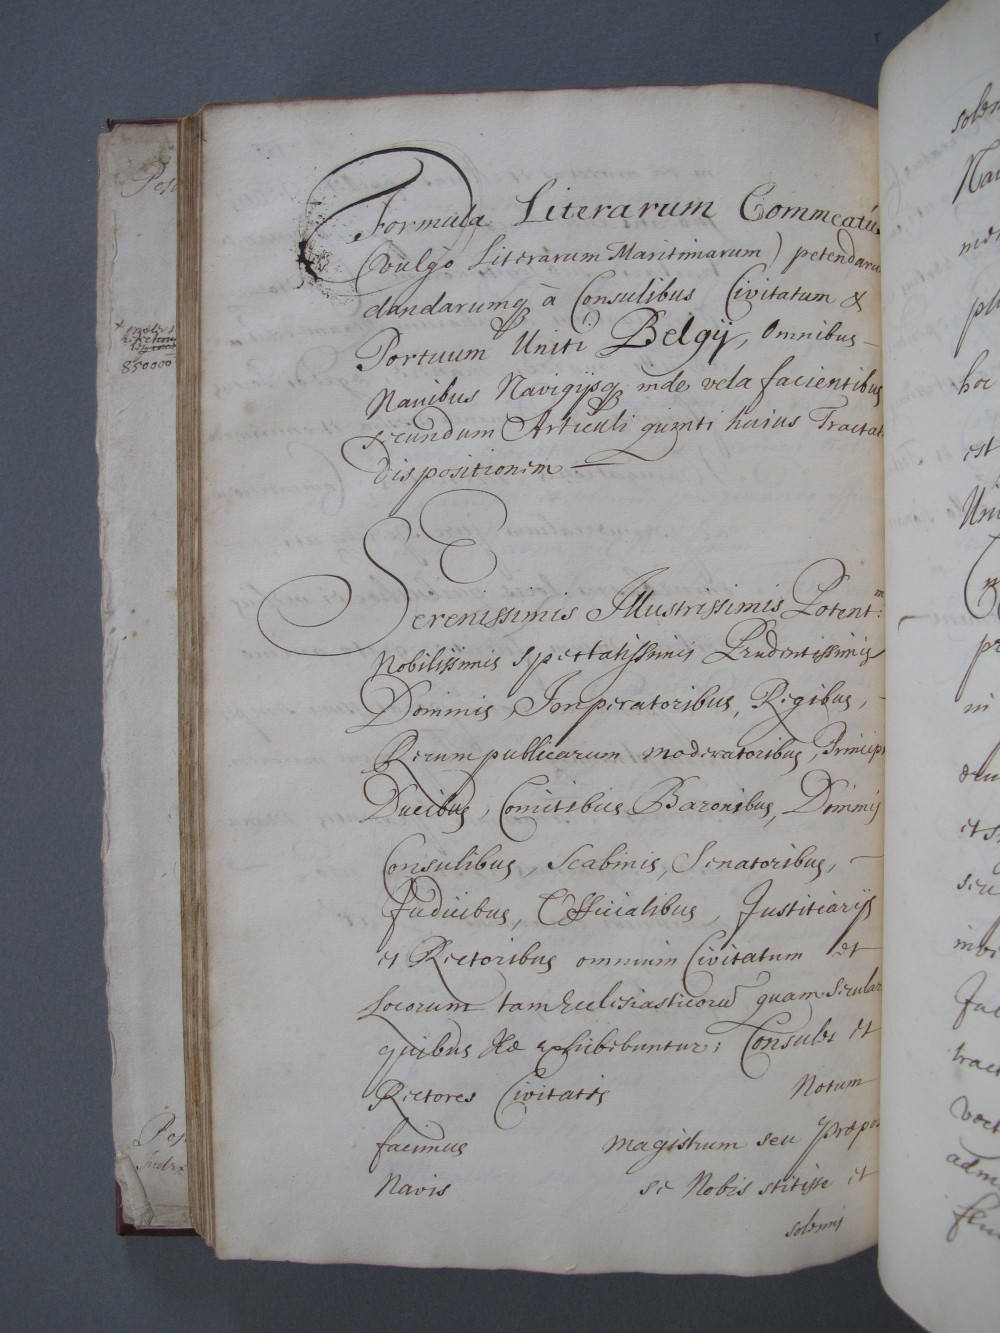 Formula Literarum Commeatus
(vulgo Literarum Maritimarum) petendarum
dandarumq; à Consulibus Civitatum &
Portuum Uniti Belgij, Omnibus –
Navibus Navigijsq; inde vela facientibus
secundum Articuli quinti huius Tractat
dispositionem —
Serenissimis Illustrissimis Potent:m
Nobilissimis Spectatissimis Prudentissimis
Dominis, Imperatoribus, Regibus, –
Rerumpublicarum moderatoribus, Princip
Ducibus, Comitibus Baronibus, Dominis
Consulibus, Scabinis, Senatoribus, –
Judicibus, Officialibus, Justitiarijs
et Rectoribus omnium Civitatum et
Locorum tam Ecclesiasticorū quam Secular
quibus Hæ exhibebuntur: Consules et
Rectores Civitatis Notum
facimus magistrum seu Præpos
Navis se Nobis stitisse et
solemni
Pos
850000
Pos
Index
solem
Nav
pl
hoc
est
Uni
pr
in
et s
seu
invi
Jur
tract
admi